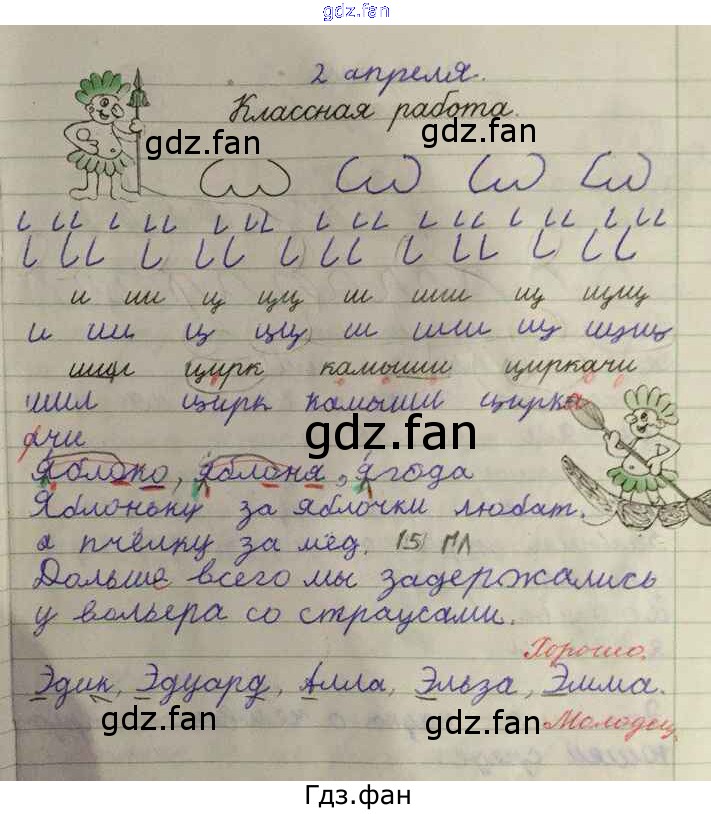 gdz.fan
2 апреля.
Классная работа.
gdz.fan gdz.fan
и ии ц цц ш шш щ щщ
и ии ц цц ш шш щ щщ
шил цирк камыши циркачи
шил цирк камыши цирка
gdz.fan
ачи
Яблоко, яблоня, ягода
Яблоньку за яблочки любат.
а пчёлку за мёд. 15
Дольше всего мы задержались
у вольера со страусами.
Хорошо.
Эдик, Эдуард, Алла, Эльза, Эмма.
gdz.fan gdz.fan Молодец
Гдз.фан